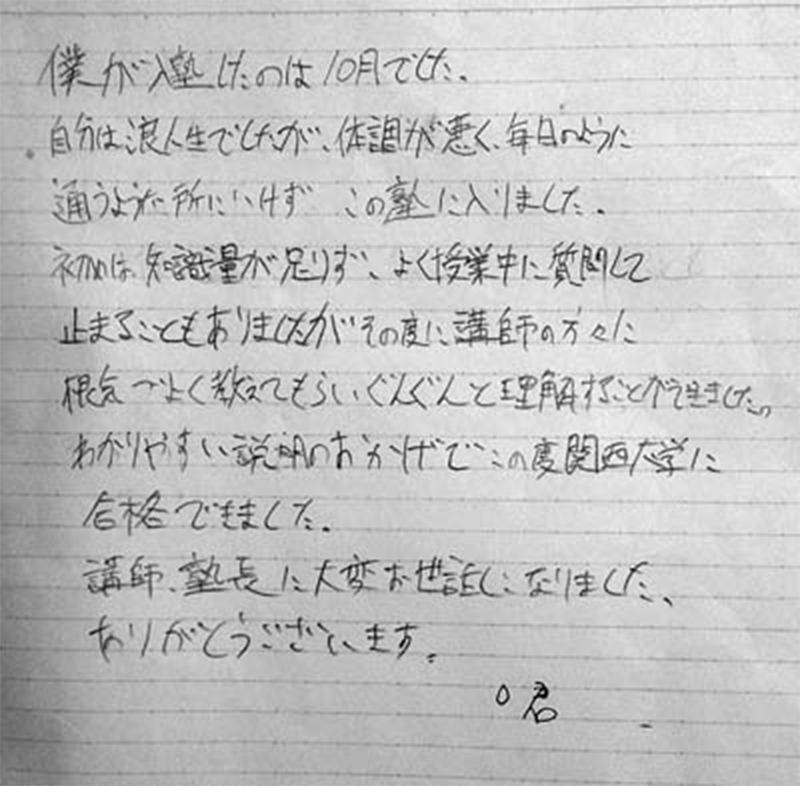 僕が入塾したのは10月でした。
自分は浪人生でしたが、体調が悪く、毎日のように
通うような所にいけず この塾に入りました。
初めは知識量が足りず、よく授業中に質問して
止まることもありましたがその度に講師の方々に
根気づよく教えてもらいぐんぐんと理解することができました。
わかりやすい説明のおかげでこの度関西大学に
合格できました。
講師、塾長に大変お世話になりました、
ありがとうございます。
O君